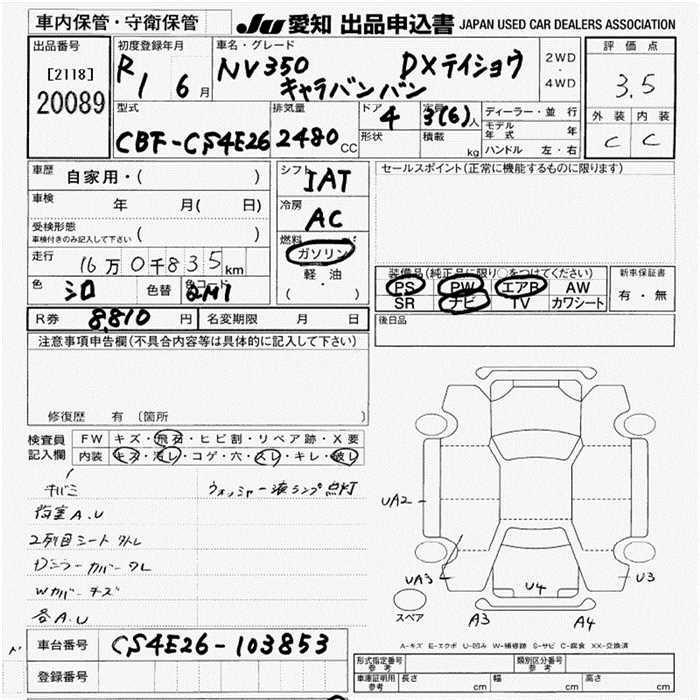 車内保管・守衛保管
JU 愛知 出品申込書 JAPAN USED CAR DEALERS ASSOCIATION
出品番号
[2118]
20089
初度登録年月
R1 6月
車名・グレード
NV350 DXテイショウ
キャラバンバン
2WD
4WD
評価点
3.5
外装 内装
C C
型式
CBF-CS4E26
排気量
2480 CC
ドア
4
形状
定員
3(6)人
積載
kg
ディーラー・並行
モデル年式 年
ハンドル 左・右
車歴 自家用・( )
車検 年 月( 日)
受検形態
車検付きのみ記入して下さい ( )
走行 16万0千835km
色 シロ 色替 色コード QM1
シフト
IAT
冷房
AC
燃料
ガソリン
軽・油
( ・ )
セールスポイント(正常に機能するものに限ります)
装備品(純正品に限り○をつけてください)
PS PW エアB AW
SR ナビ TV カワシート
新車保証書
有・無
後日品
R券 8,810円 名変期限 月 日
注意事項申告欄(不具合内容等は具体的に記入して下さい)
修復歴 有〔箇所
検査員
記入欄
FW キズ・飛石・ヒビ割・リペア跡・X要
内装 キズ・汚レ・コゲ・穴・スレ・キレ・破レ
キバミ ウォッシャー液ランプ点灯
荷室A.U
2列目シート
Dミラーカバー
Wカバーキズ
各A.U
UA2
UA3
U4
U3
A3
A4
スペア
A-キズ E-エクボ U-凹み W-補修跡 S-サビ C-腐食 XX-交換済
車台番号 CS4E26-103853
登録番号
形式指定番号
参考
類別区分番号
参考
車庫証明用
参考
長さ cm 幅 cm 高さ cm